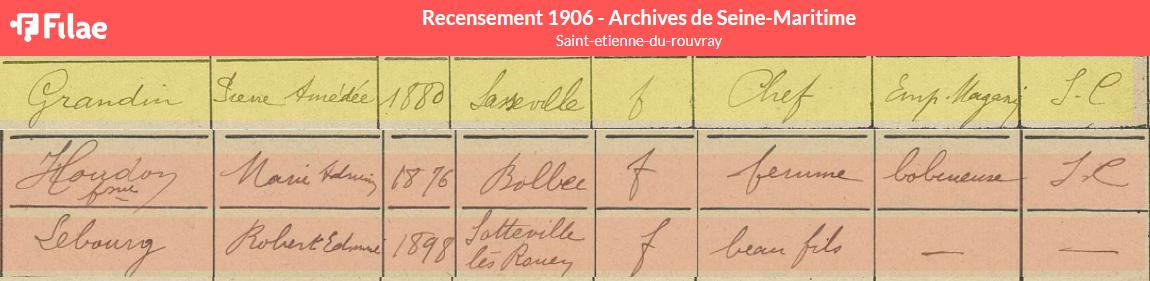 Filae
Recensement 1906 - Archives de Seine-Maritime
Saint-etienne-du-rouvray
Grandin Pierre Amédée 1880 Sasseville f Chef Emp. Magasin S-C
Houdon fme Marie 1876 Bolbec f femme bobineuse S-C
Lebourg Robert Edmond 1898 Sotteville lès Rouen f beau fils — —